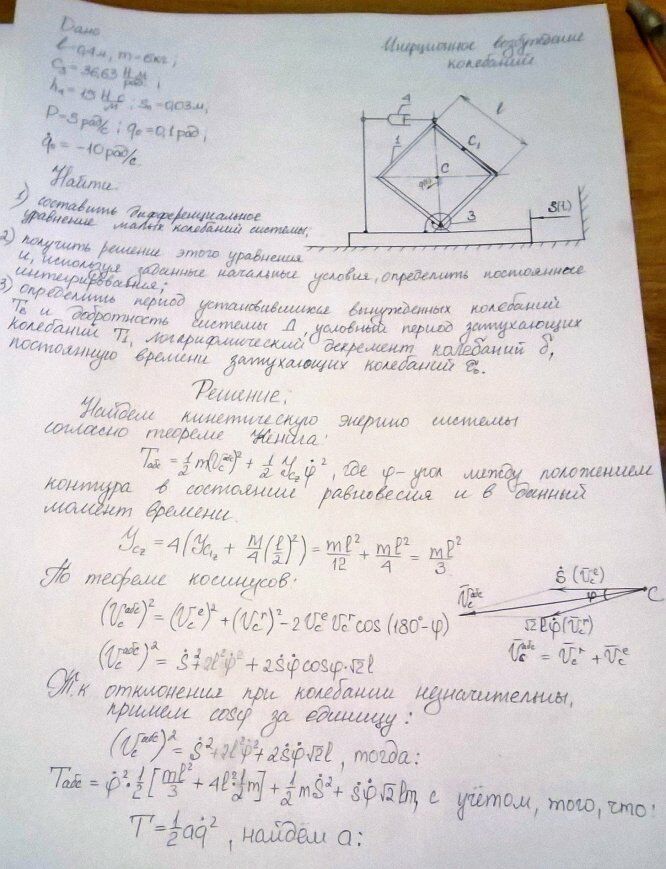 Дано
l = 0,4 м, m = 6 кг;
C₃ = 36,63 Н·м/рад;
h₁ = 15 Н·с/м; S₀ = 0,03 м,
P = 3 рад/с; q₀ = 0,1 рад,
q̇₀ = -10 рад/с.
Инерционное возбуждение
колебаний
4
l
1
C₁
C
3
S(t)
Найти
1) составить дифференциальное
уравнение малых колебаний системы;
2) получить решение этого уравнения
и, используя заданные начальные условия, определить постоянные
интегрирования;
3) определить период установившихся вынужденных колебаний
Tв и добротность системы Д, условный период затухающих
колебаний T₁, логарифмический декремент колебаний δ,
постоянную времени затухающих колебаний τ₀.
Решение:
Найдем кинетическую энергию системы
согласно теореме Кенига:
Tабс = 1/2 m(Vcабс)² + 1/2 Jcz φ̇², где φ - угол между положением
контура в состоянии равновесия и в данный
момент времени.
Jcz = 4(Jc₁z + m/4 (l/2)²) = ml²/12 + ml²/4 = ml²/3
По теореме косинусов:
Ṡ (V̄cᵉ)
C
V̄cабс
φ
√2lφ̇ (V̄cʳ)
(Vcабс)² = (Vcᵉ)² + (Vcʳ)² - 2VcᵉVcʳ cos(180° - φ)
V̄cабс = V̄cʳ + V̄cᵉ
(Vcабс)² = Ṡ² + 2l²φ̇² + 2Ṡφ̇cosφ·√2l
Т.к отклонения при колебании незначительны,
примем cosφ за единицу:
(Vcабс)² = Ṡ² + 2l²φ̇² + 2Ṡφ̇√2l, тогда:
Tабс = φ̇²·1/2[ml²/3 + 4l²·1/2m] + 1/2mṠ² + Ṡφ̇√2lm, с учётом, того, что:
T = 1/2 aq̇², найдём a: